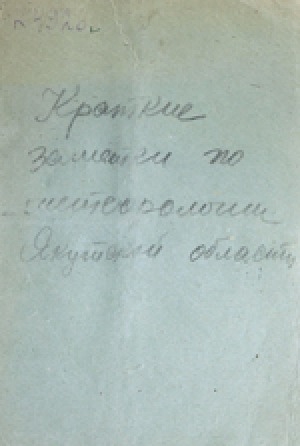 Краткие
заметки по
метеорологии
Якутской области